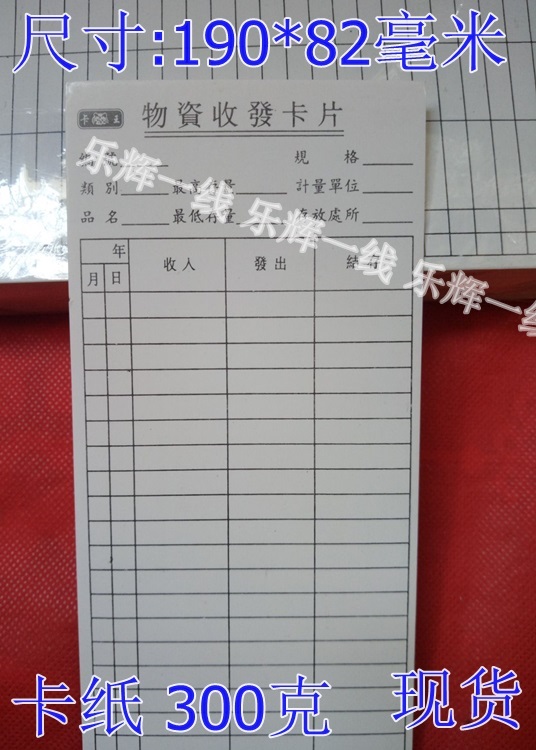 尺寸:190*82毫米
卡 王
物資收發卡片
編號 規格
類別 最高存量 計量單位
品名 最低存量 存放處所
年
月 日 收入 發出 結存
乐辉一线 乐辉一线 乐辉一线
卡纸 300克 现货